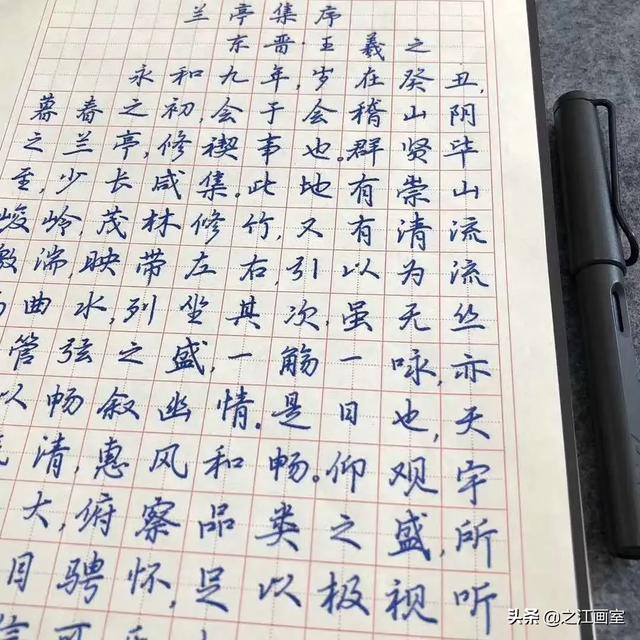 兰亭集序
东晋·王羲之
永和九年,岁在癸丑,
暮春之初,会于会稽山阴
之兰亭,修禊事也。群贤毕
至,少长咸集。此地有崇山
峻岭,茂林修竹,又有清流
激湍,映带左右,引以为流
曲水,列坐其次,虽无丝
管弦之盛,一觞一咏,亦
以畅叙幽情。是日也,天
清,惠风和畅。仰观宇
大,俯察品类之盛,所
目骋怀,足以极视听
可
头条 @之江画室